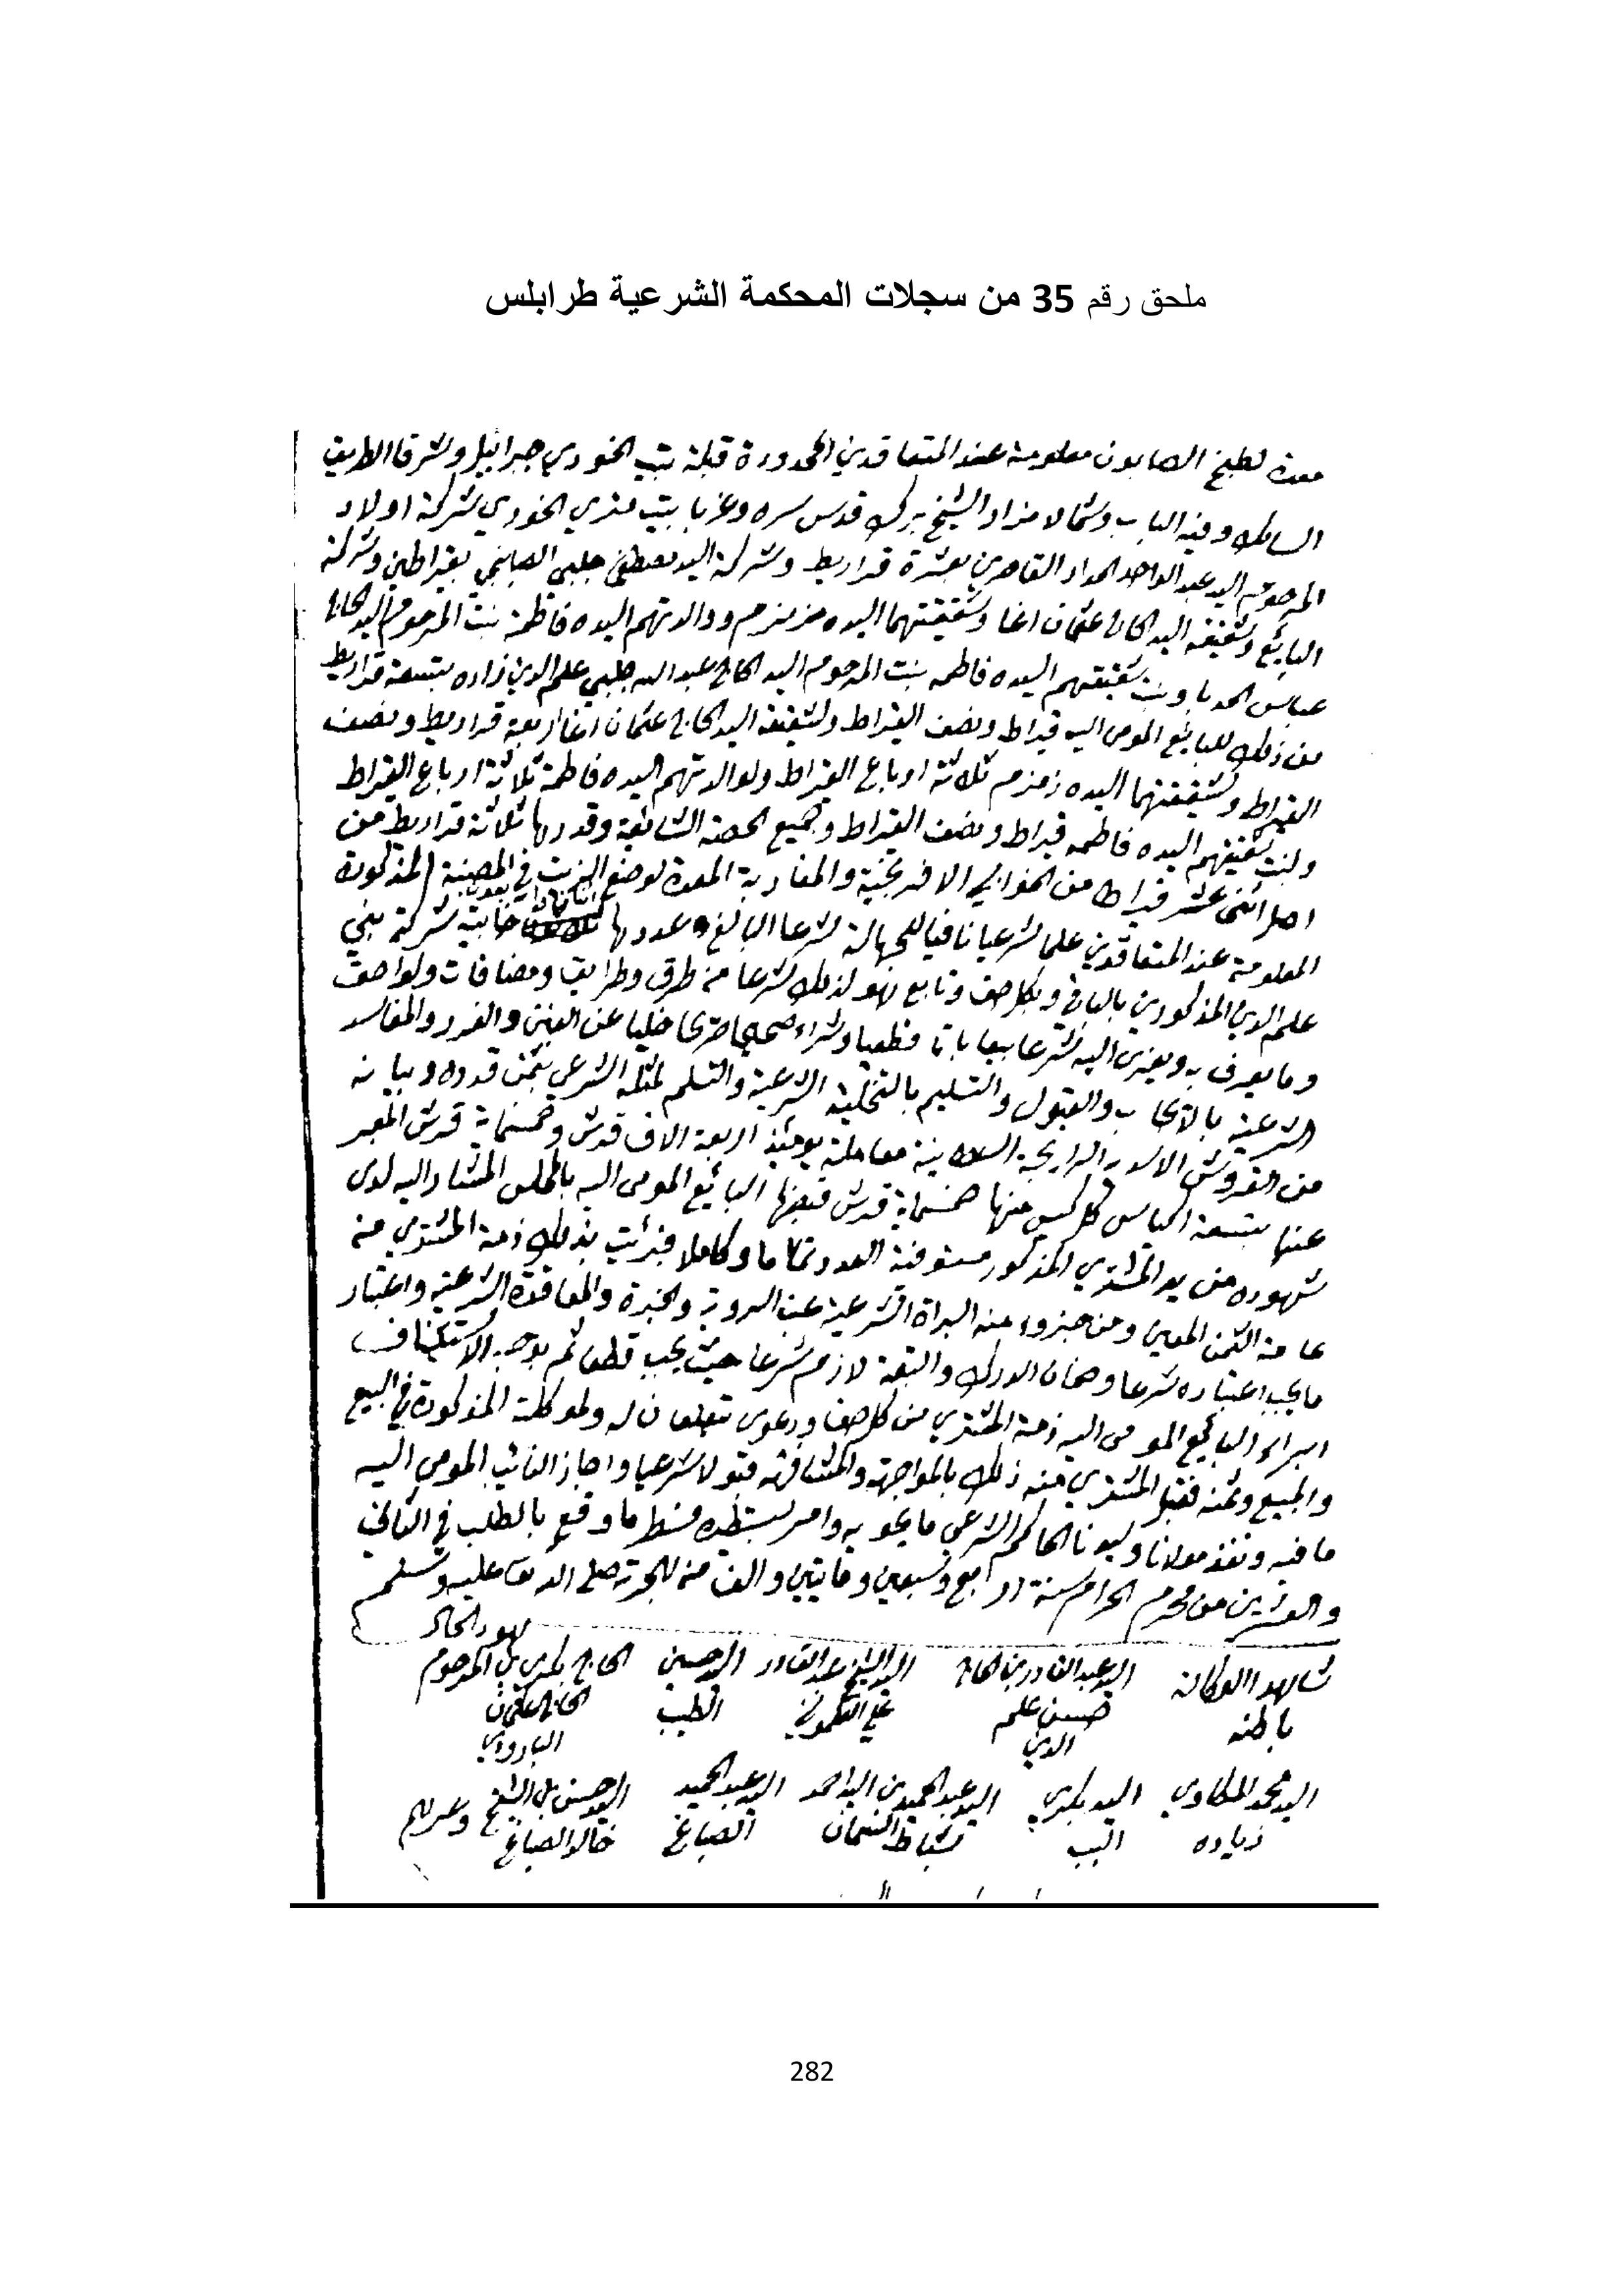 ملحق رقم 35 من سجلات المحكمة الشرعية طرابلس
معدة لطبخ الصابون معلومة عند المتعاقدين المحدودة قبلة بيت الخوري جبرائيل وشرقا الطريق
السالك وفيه الباب وشمالا مزار الشيخ بركه قدس سره وغربا بيت متري الخوري شركة اولاد
المرحوم السيد عبد الواحد الحداد القاصرين بعشرة قراريط وشركة السيد مصطفى جلبي الصابنجي بقيراطين وشركة
البايع وشقيقه السيد الحاج عثمان اغا وشقيقتهما السيده زمزم ووالدتهم السيده فاطمة بنت المرحوم السيد الحاج
عباس وبنت شقيقتهم السيده فاطمه بنت المرحوم السيد الحاج عبد الله جلبي علم الدين زاده بتسعة قراريط
من ذلك للبايع المومى اليه قيراط ونصف القيراط ولشقيقه السيد الحاج عثمان اغا اربعة قراريط ونصف
القيراط ولشقيقتهما السيده زمزم ثلاثة ارباع القيراط ولوالدتهم السيده فاطمة ثلاثة ارباع القيراط
ولبنت شقيقتهم السيده فاطمه قيراط ونصف القيراط وجميع الحصة الشائعة وقدرها ثلاثة قراريط من
اصل اثنى عشر قيراطا من الخوابي الافرنجية والمغاربة المعدة لوضع الزيت في المصبنة المذكورة
المعلومة عند المتعاقدين علما شرعيا نافيا للجهالة شرعا البالغ عددها خابية شركة بني
علم الدين المذكورين بالباقي وبكل حق وتابع هو لذلك شرعا من طرق وطرايق ومضافات ولواحق
وما يعرف به ويعزى اليه شرعا بيعا باتا قطعيا وشراء صحيحا خليا عن الغبن والغرر والمفاسد
الشرعية بالايجاب والقبول والتسليم بالتخلية الشرعية والتسلم لمثله الشرعي بثمن قدره وبيانه
من القروش الاسدية الرايجة السلطانية معاملة يومئذ اربعة الاف قرش وخمسماية قرش المعبر
عنها بتسعة اكياس كل كيس منها خمسماية قرش قبضها البايع المومى اليه بالمجلس المشار اليه لدى
شهوده من يد المشتري المذكور مستوفية العدد تماما وكاملا فبرئت بذلك ذمة المشتري منه
عامة الثمن المعين ومن جزء منه البراة الشرعية عن الروية والخبرة والمعاقدة الشرعية واعتبار
ما يجب اعتباره شرعا وضمان الدرك والتبعة لازم شرعا حيث يجب قطعا ثم بوجه الاستيناف
ابراء البايع المومى اليه ذمة المشتري من كل حق ودعوى تتعلقان له ولموكلة المذكورة في البيع
والمبيع وثمنه فقبل المشتري منه ذلك بالمواجهة والمشافهة قبولا شرعيا واجاز النائب المومى اليه
ما فيه ونفذ مولانا وليونا الحاكم الشرعي ما يحويه وامر بتسطيره فسطر ما وقع بالطلب في الثاني
والعشرين من محرم الحرام سنة اربع وسبعين ومايتين والف من للهجرته صلى الله تعالى عليه وسلم
شهود الحال
شاهدا الوكالة السيد عبد القادر بن الحاج السيد الشيخ عبد القادر السيد حسين الحاج بكري بن المرحوم
باطنه حسين علم الطيب الحاج عثمان
الدين البارودي
السيد محمد الملكاوي السيد بكري السيد عبد الحميد بن السيد احمد السيد عبد الحميد السيد حسن بن الشيخ وغيرهم
زياده الصباغ خالد الصباغ
282